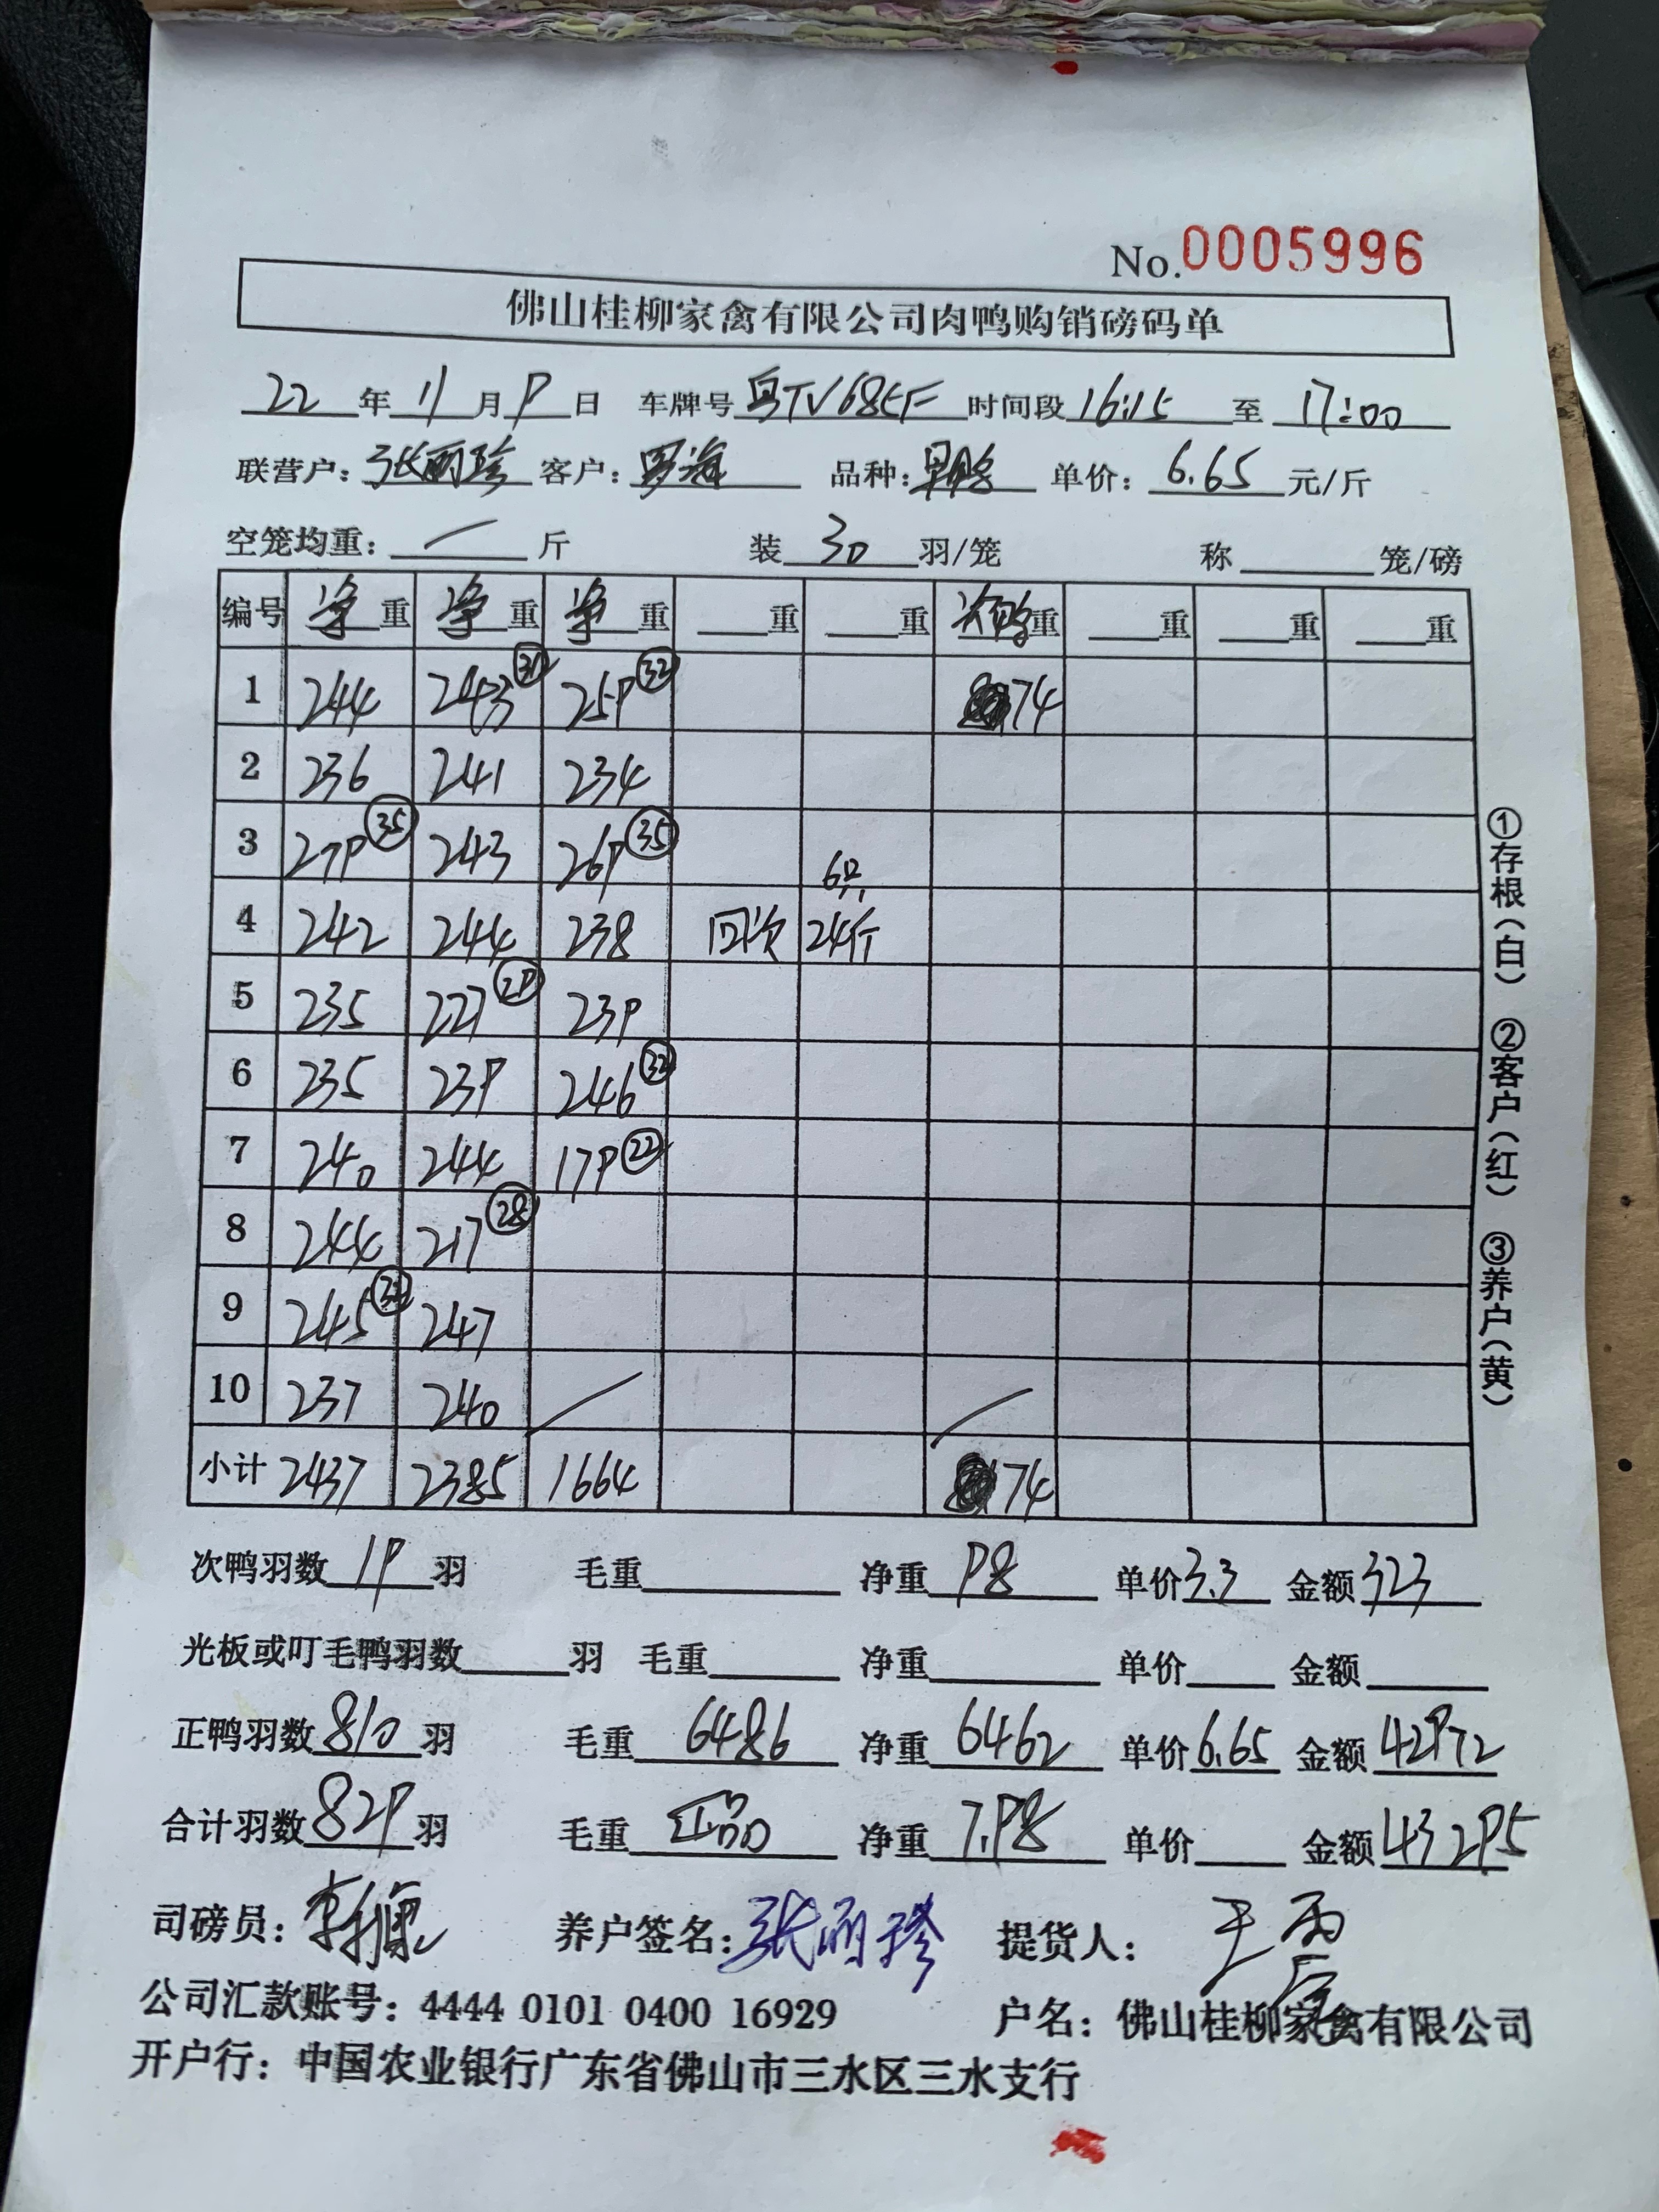 No.0005996
佛山桂柳家禽有限公司肉鸭购销磅码单
22 年 11 月 9 日 车牌号 粤TV685F 时间段 16:15 至 17:00
联营户: 张丽珍 客户: 罗海 品种: 单价: 6.65 元/斤
空笼均重: 斤 装 30 羽/笼 称 笼/磅
编号 净重 净重 净重 重 重 次鸭重 重 重 重
1 244 243 ㉛ 259 ㉜ 74
2 236 241 234
3 279 ㉟ 243 269 ㉟ 6只
4 242 244 238 回次 24斤
5 235 227 ㉙ 239
6 235 239 246 ㉜
7 240 244 179 ㉒
8 244 217 ㉘
9 245 247
10 237 240
小计 2437 2385 1664 74
次鸭羽数 19 羽 毛重 净重 98 单价 3.3 金额 323
光板或叮毛鸭羽数 羽 毛重 净重 单价 金额
正鸭羽数 810 羽 毛重 6486 净重 6462 单价 6.65 金额 42972
合计羽数 829 羽 毛重 正品 净重 7.98 单价 金额 43295
司磅员: 养户签名: 张丽珍 提货人:
公司汇款账号: 4444 0101 0400 16929 户名: 佛山桂柳家禽有限公司
开户行: 中国农业银行广东省佛山市三水区三水支行
①存根(白) ②客户(红) ③养户(黄)